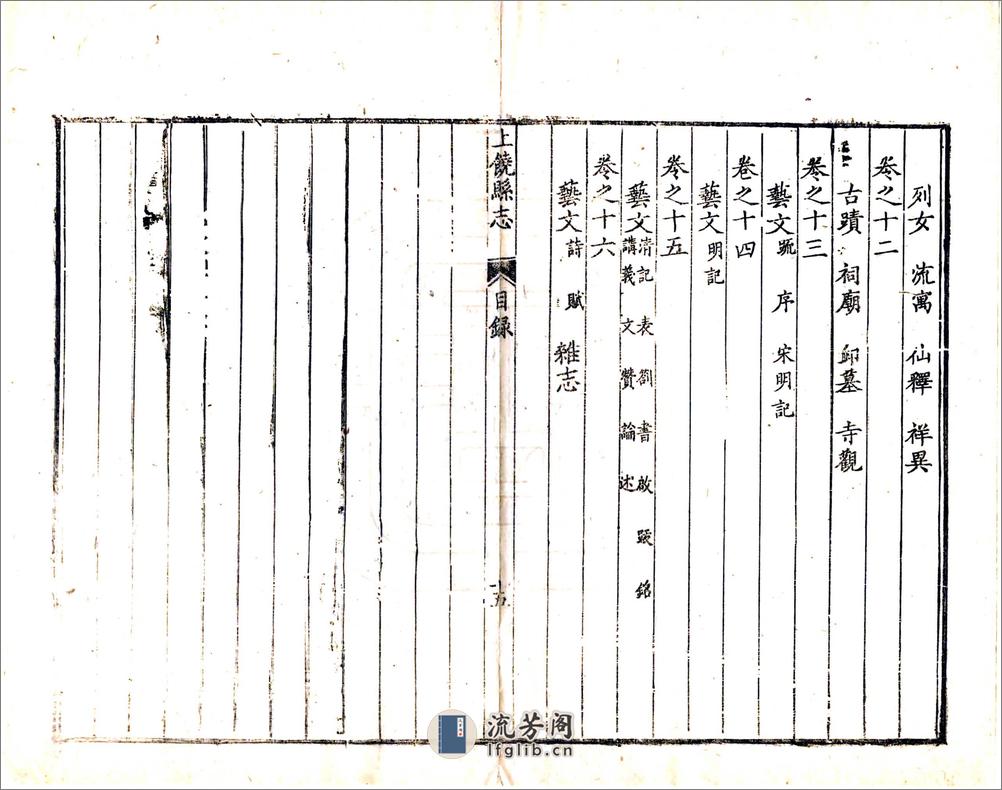 列女 流寓 仙釋 祥異
卷之十二
古蹟 祠廟 邱墓 寺觀
卷之十三
藝文 疏 序 宋明記
卷之十四
藝文 明記
卷之十五
藝文 清記 表 劄 書 啟 跋 銘
講義 文 贊 論 述
卷之十六
藝文 詩 賦 雜志
上饒縣志 目錄 十五
流芳阁
lfglib.cn